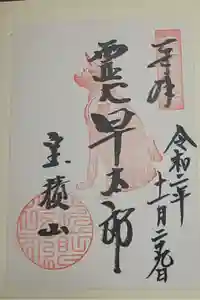 奉拝
令和二年
十一月二十九日
靈犬早太郎
宝積山